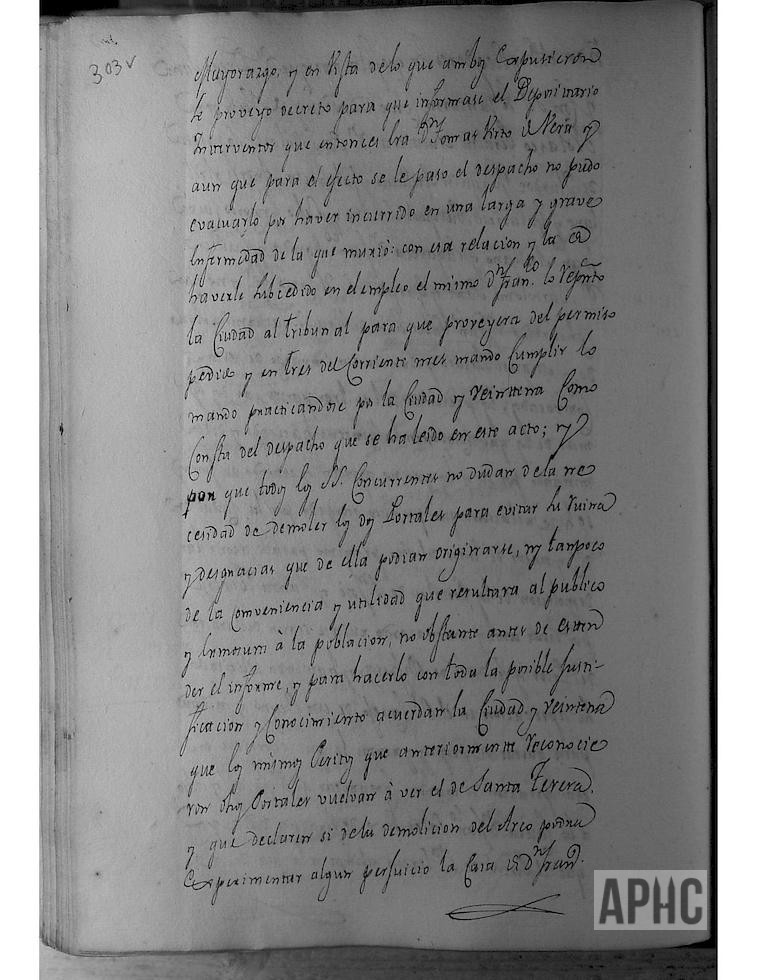 303v
Mayorazgo, y en vista de lo que ambos Expusieron
se proveyo decreto para que informase el
Interventor que entonces era Dn Tomas Vrto de Nera y
aun que para el efecto se le paso el despacho no pudo
evacuarlo por haver incurrido en una larga y grave
Enfermedad de la que murió: con esa relacion y la de
haverle subcedido en el empleo el mismo Dn Franco lo
la Ciudad al tribunal para que proveyera del permiso
pedido y en tres del Corriente mes mando Cumplir lo
mando practicandose por la Ciudad y Veintena Como
Consta del despacho que se ha leido en este acto; y
por que todos los SS. Concurrentes no dudan de la ne
cesidad de demoler los dos Portales para evitar su ruina
y desgracias que de ella podian originarse, ny tanpoco
de la Conveniencia y utilidad que resultara al publico
y Enmoxun à la poblacion, no obstante antes de esten
der el informe, y para hacerlo con toda la posible Justi-
ficacion y Conocimiento acuerdan la Ciudad y Veintena
que los mismos Peritos que anteriormente reconocie
ron dhos Portales vuelvan à ver el de Santa Teresa,
y que declaren si de la demolicion del Arco podria
Experimentar algun perjuicio la Casa de Dn Franco.
APHC